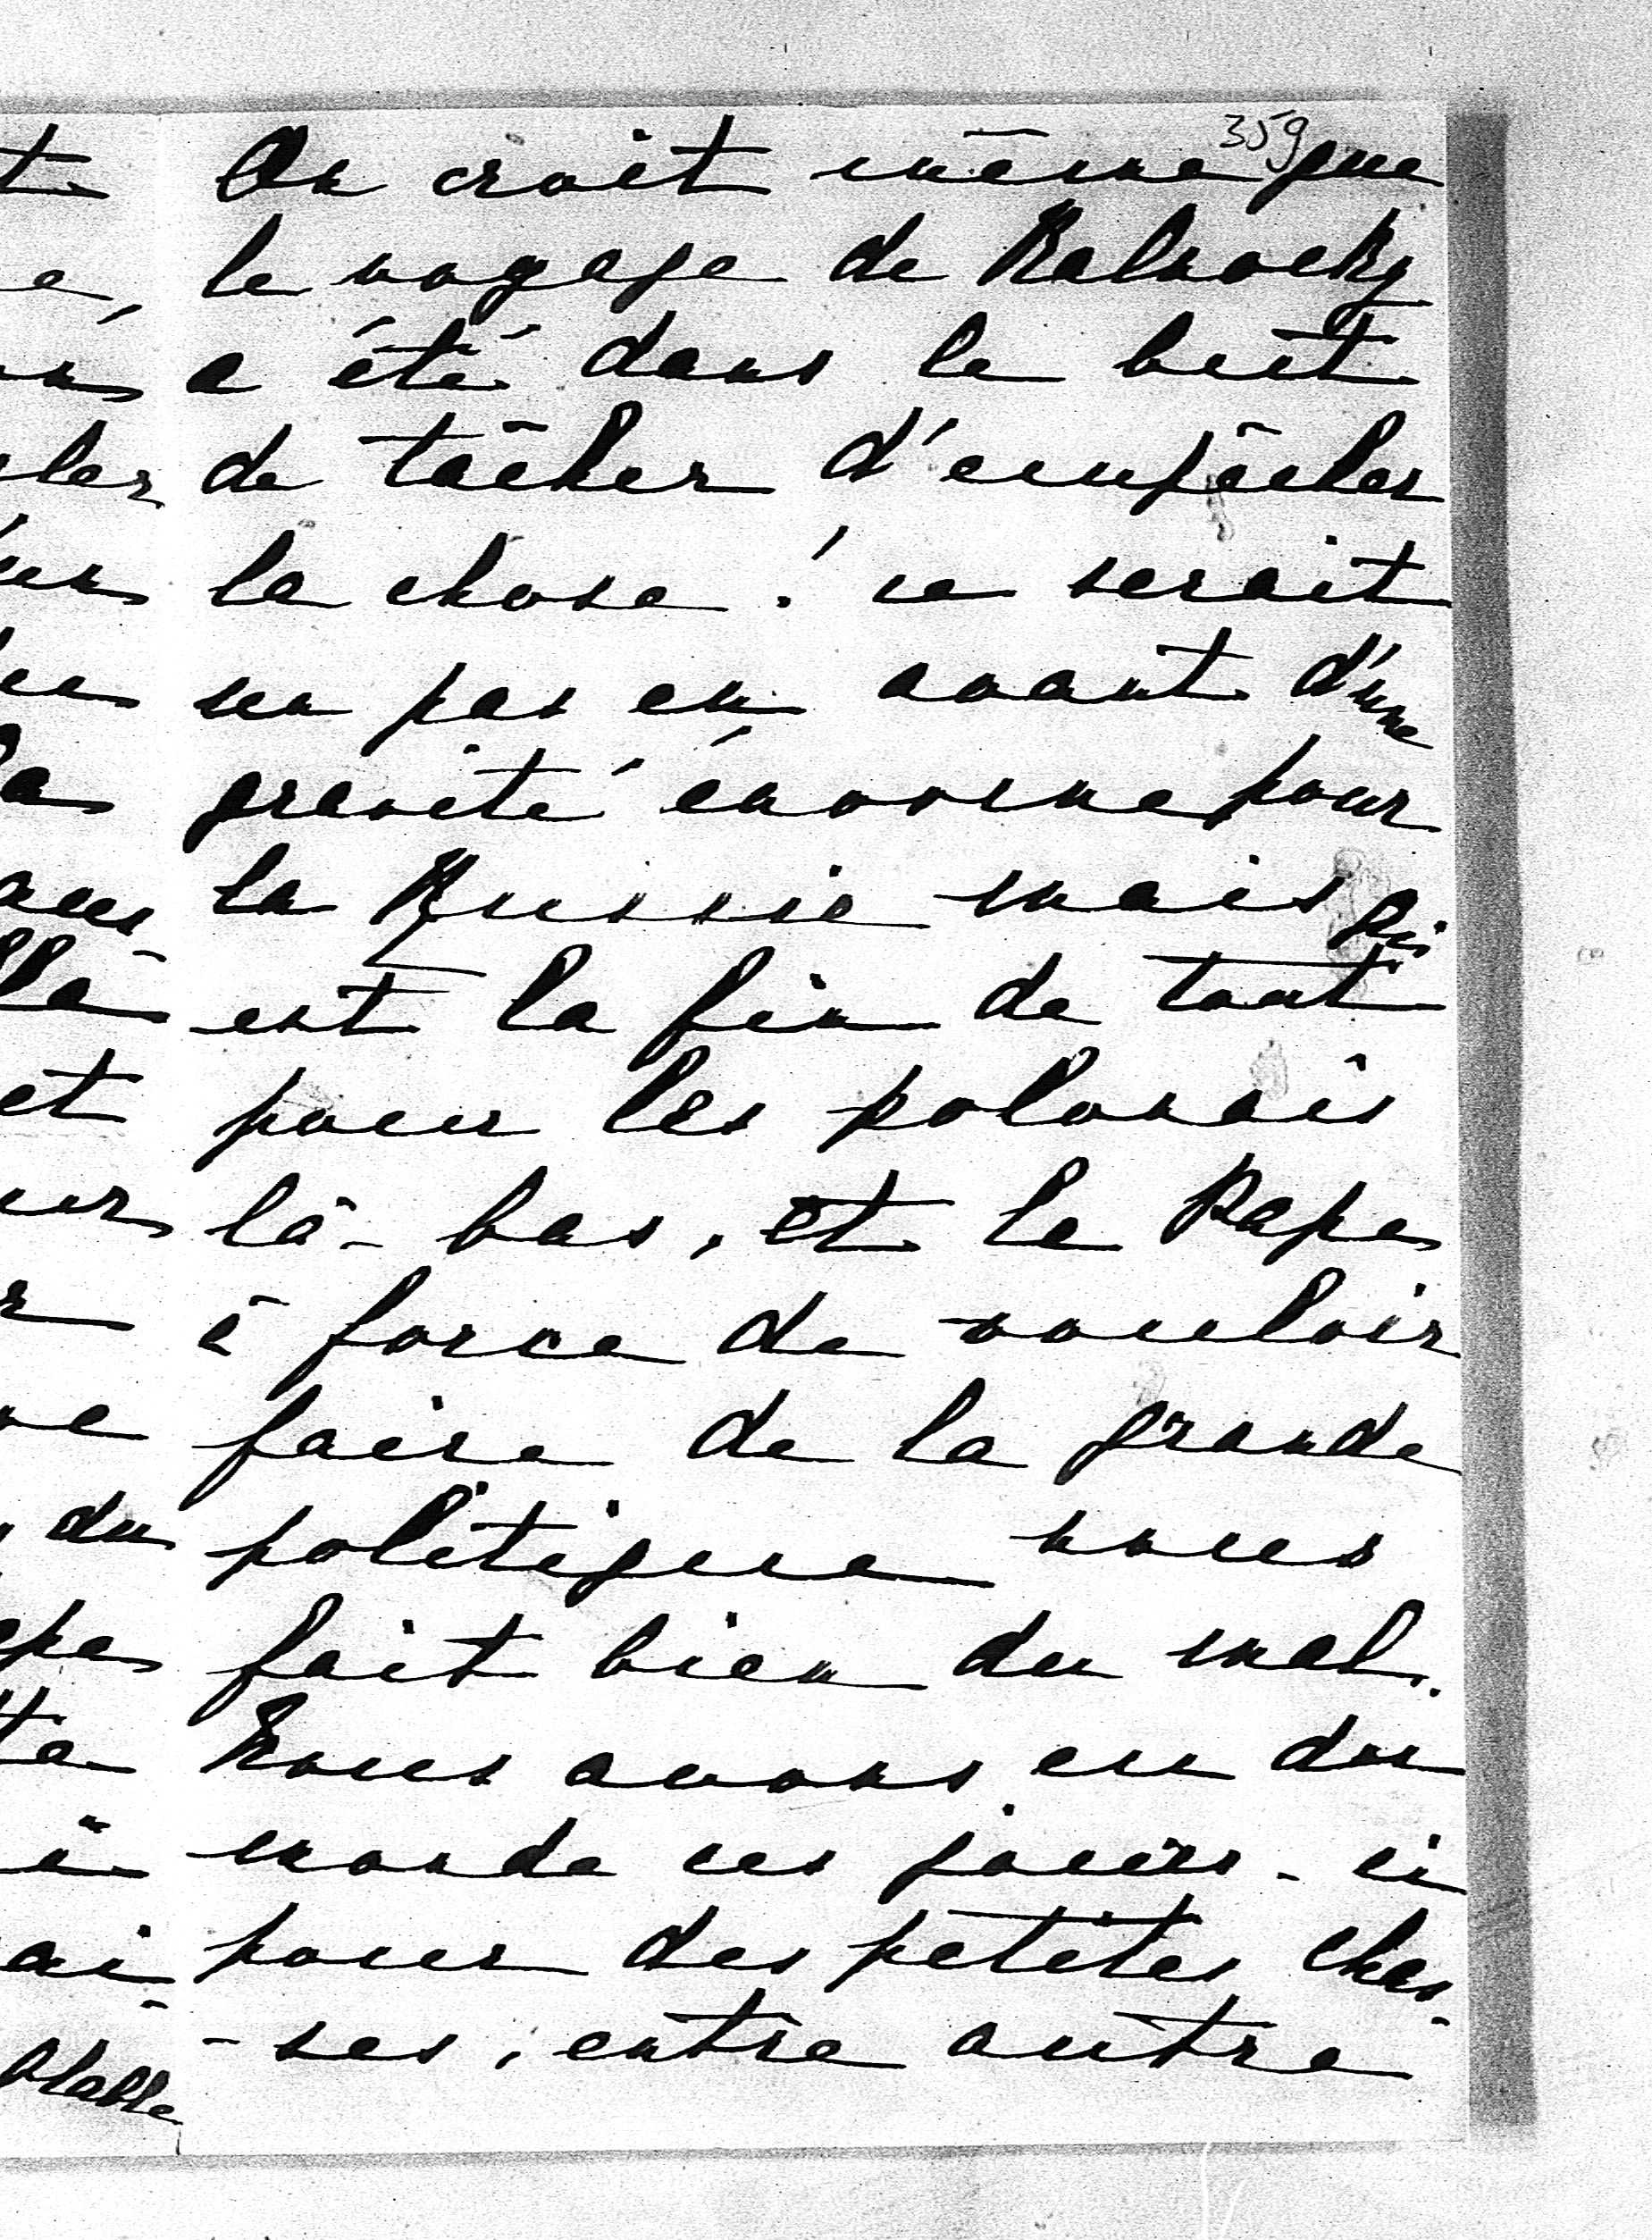 359
On croit même que
le voyage de Kalnocky
a été dans le but
de tâcher d'empêcher
la chose! ce serait
un pas en avant d'une
gravité énorme pour
la Russie mais
est la fin de tout
pour les polonais
là-bas, et le Pape
à force de vouloir
faire de la grande
politique nous
fait bien du mal.
Nous avons eu du
monde ces jours-ci
pour des petites chas-
-ses, entre autre